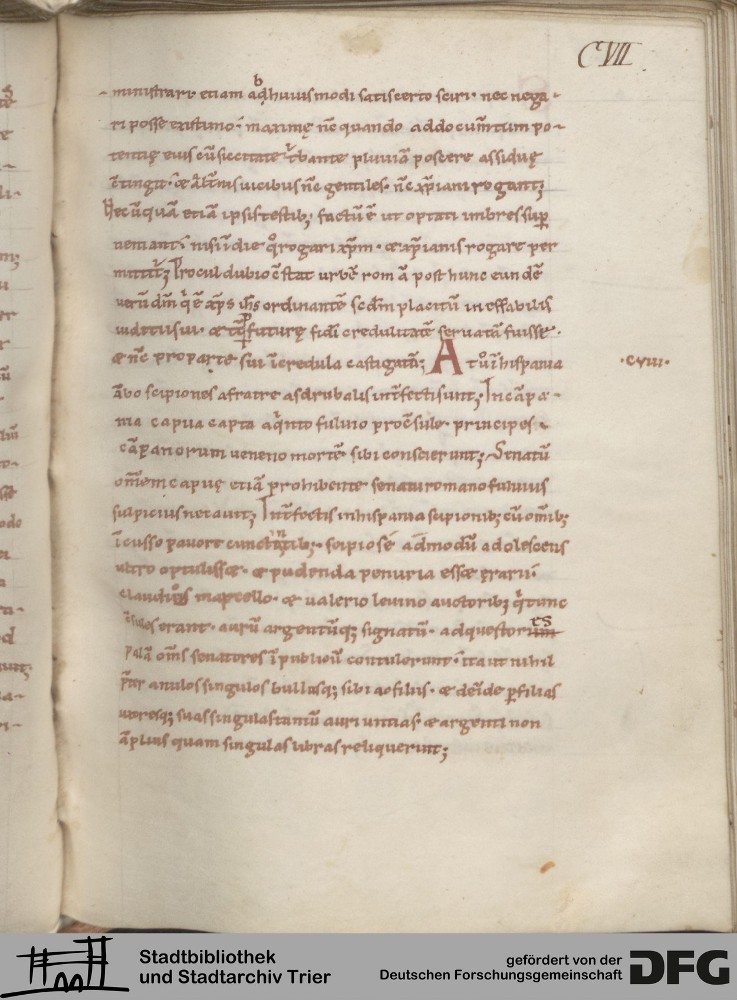 CVII
ministrari etiam abhuiusmodi satis certo sciri· nec nega-
ri posse existimo· maximę nc̄ quando ad documtum po-
tentię eius cū siccitate turbante pluuiā poscere assiduę
c̄tingit· & alt̄nis uicibus nc̄ gentiles· nc̄ xp̄iani rogant;
Nec ūquā etiā ipsis testib; factū ē ut optati imbres sup
ueniant· nisi ī die quo rogari xp̄m· & xp̄ianis rogare per
mittit̄; Procul dubio c̄stat urbē romā post hunc eundē
uerū dm̄ qui ē xp̄s ih̄s ordinantē scdm placitū ineffabilis
iudicii sui· & tc̄ p futurę fidi credulitatē seruatā fuisse·
& nc̄ pro parte sui īcredula castigatā; At ū ī hispania
·CVIII·
ābo scipiones a fratre asdrubalis int̄fecti sunt; In cāpa-
nia capua capta a quīnto fuluio proc̄sule· principes
cāpanorum ueneno mortē sibi conscierunt; Senatū
om̄em capuę etiā prohibente senatu romano fuluius
sulpicius necauit; Int̄fectis in hispania scipionib; cū om̄ib;
īcusso pauore cunctantib;· scipio sé admodū adolescens
ultro optulisset· & pudenda penuria esset ęrarii·
claudius marcello· & ualerio leuino auctorib; qui tunc
c̄sules erant· aurū argentūq; signatū· ad questores
palā om̄s senatores ī publicū contulerunt· ita ut nihil
pret̄ anulos singulos bullasq; sibi ac filiis· & deīde p filias
uxoresq; suas singulas tantū auri uncias· & argenti non
āplius quam singulas libras reliquerunt;
Stadtbibliothek
und Stadtarchiv Trier
gefördert von der
Deutschen Forschungsgemeinschaft
DFG